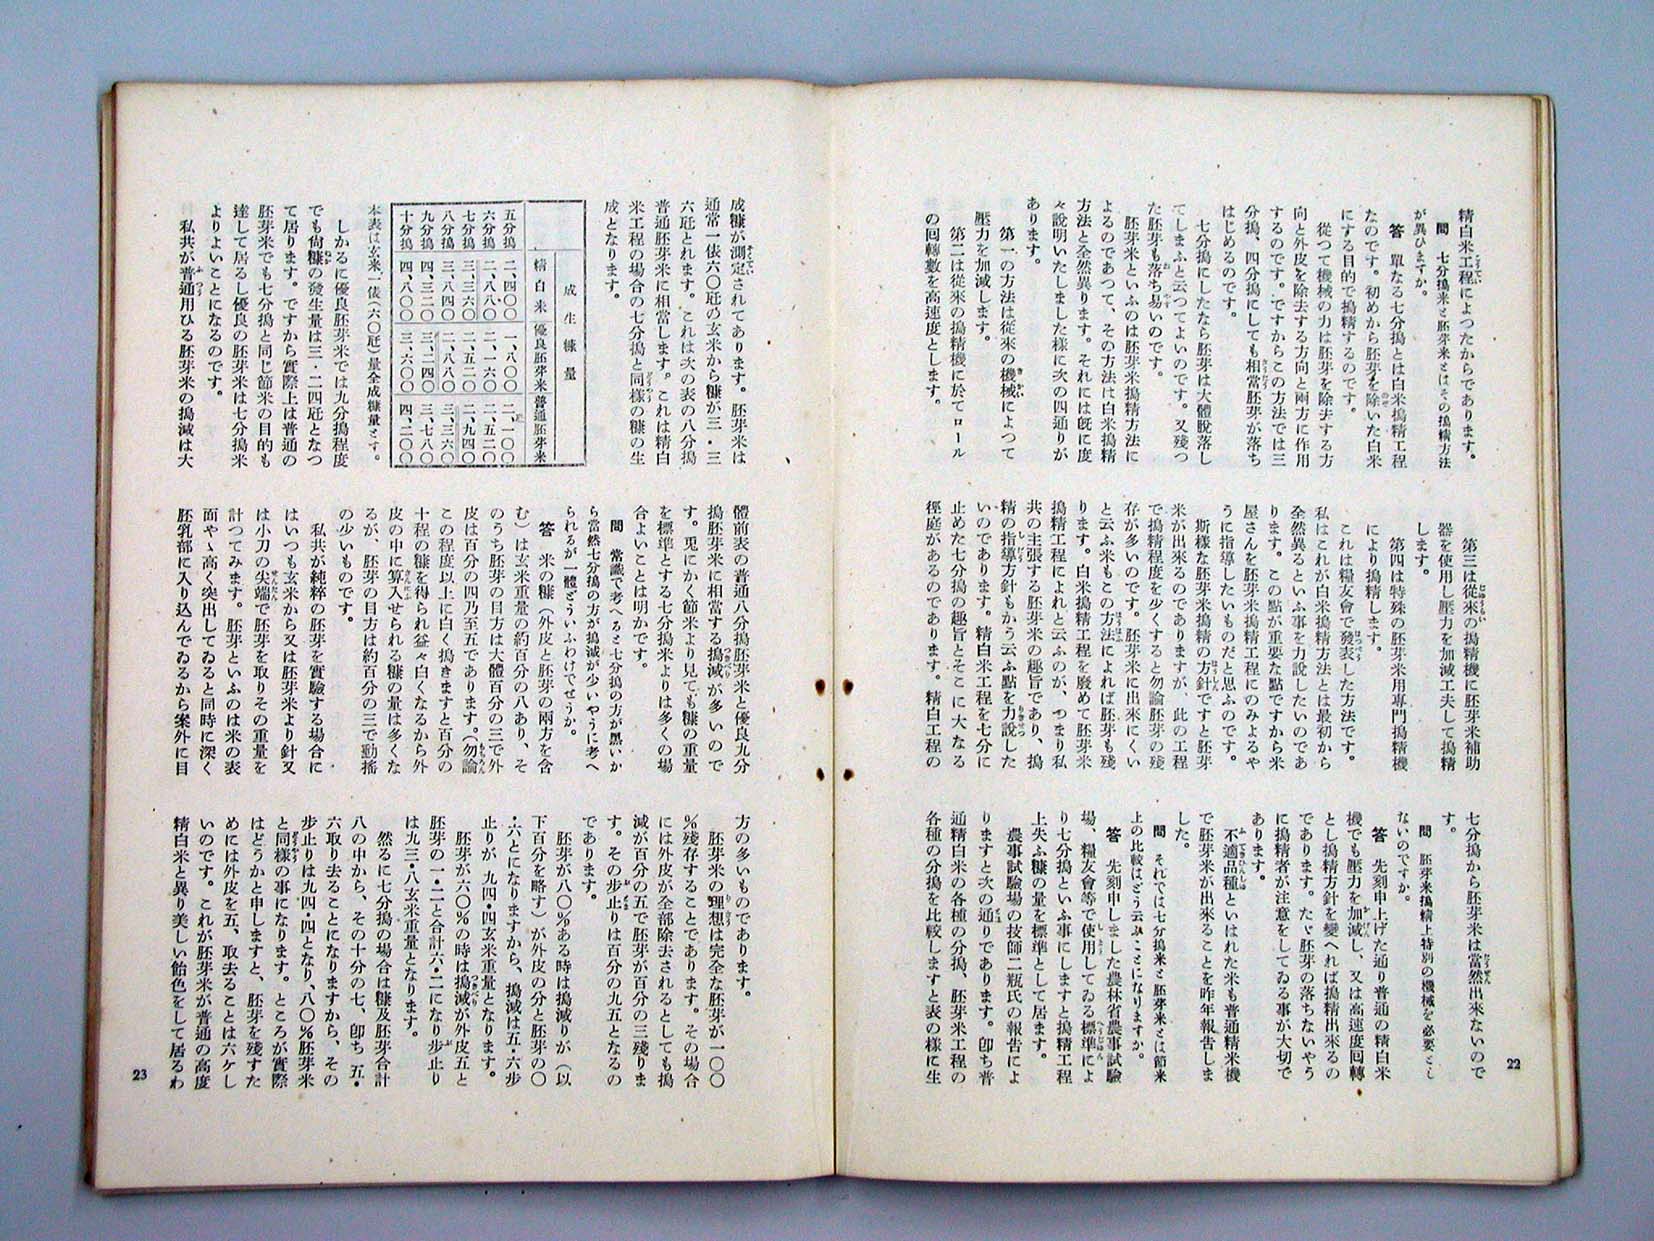 精白米工程によつたからであります。
問　七分搗米と胚芽米とはその搗精方法
が異ひますか。
答　單なる七分搗とは白米搗精工程
なのです。初めから胚芽を除いた白米
にする目的で搗精するのです。
從つて機械の力は胚芽を除去する方
向と外皮を除去する方向と兩方に作用
するのです。ですからこの方法では三
分搗、四分搗にしても相當胚芽が落ち
はじめるのです。
七分搗にしたなら胚芽は大體脫落し
てしまふと云つてよいのです。又殘つ
た胚芽も落ち易いのです。
胚芽米といふのは胚芽米搗精方法に
よるのであつて、その方法は白米搗精
方法と全然異ります。それには旣に度
々說明いたしました樣に次の四通りが
あります。
第一の方法は從來の機械によつて
壓力を加減します。
第二は從來の搗精機に於てロール
の囘轉數を高速度とします。
第三は從來の搗精機に胚芽米補助
器を使用し壓力を加減工夫して搗精
します。
第四は特殊の胚芽米用專門搗精機
により搗精します。
これは糧友會で發表した方法です。
私はこれが白米搗精方法とは最初から
全然異るといふ事を力說したいのであ
ります。この點が重要な點ですから米
屋さんを胚芽米搗精工程にのみよるや
うに指導したいものだと思ふのです。
斯樣な胚芽米搗精の方針ですと胚芽
米が出來るのでありますが、此の工程
で搗精程度を少くすると勿論胚芽の殘
存が多いのです。胚芽米に出來にくい
と云ふ米もこの方法によれば胚芽も殘
ります。白米搗精工程を廢めて胚芽米
搗精工程によれと云ふのが、つまり私
共の主張する胚芽米の趣旨であり、搗
精の指導方針もかう云ふ點を力說した
いのであります。精白米工程を七分に
止めた七分搗の趣旨とそこに大なる
徑庭があるのであります。精白工程の
七分搗から胚芽米は當然出來ないので
す。
問　胚芽米搗精上特別の機械を必要とし
ないのですか。
答　先刻申上げた通り普通の精白米
機でも壓力を加減し、又は高速度囘轉
とし搗精方針を變へれば搗精出來るの
であります。たゞ胚芽の落ちないやう
に搗精者が注意をしてゐる事が大切で
あります。
不適品種といはれた米も普通精米機
で胚芽米が出來ることを昨年報告しま
した。
問　それでは七分搗米と胚芽米とは節米
上の比較はどう云ふことになりますか。
答　先刻申しました農林省農事試驗
場、糧友會等で使用してゐる標準によ
り七分搗といふ事にしますと搗精工程
上失ふ糠の量を標準として居ます。
農事試驗場の技師二瓶氏の報告によ
りますと次の通りであります。卽ち普
通精白米の各種の分搗、胚芽米工程の
各種の分搗を比較しますと表の樣に生
22
成糠が測定されてあります。胚芽米は
通常一俵六〇瓩の玄米から糠が三・三
六瓩とれます。これは次の表の八分搗
普通胚芽米に相當します。これは精白
米工程の場合の七分搗と同樣の糠の生
成となります。
成生糠量
精白米　優良胚芽米　普通胚芽米
五分搗　二、四〇〇　一、八〇〇　二、一〇〇
六分搗　二、八八〇　二、一六〇　二、五二〇
七分搗　三、三六〇　二、五二〇　二、九四〇
八分搗　三、八四〇　二、八八〇　三、三六〇
九分搗　四、三二〇　三、二四〇　三、七八〇
十分搗　四、八〇〇　三、六〇〇　四、二〇〇
本表は玄米一俵(六〇瓩)量全成糠量とす。
しかるに優良胚芽米では九分搗程度
でも尙糠の發生量は三・二四瓩となつ
て居ります。ですから實際上は普通の
胚芽米でも七分搗と同じ節米の目的も
達して居るし優良の胚芽米は七分搗米
よりよいことになるのです。
私共が普通用ひる胚芽米の搗減は大
體前表の普通八分搗胚芽米と優良九分
搗胚芽米に相當する搗減が多いので
す。兎にかく節米より見ても糠の重量
を標準とする七分搗米よりは多くの場
合よいことは明かです。
問　常識で考へると七分搗の方が黑いか
ら當然七分搗の方が搗減が少いやうに考へ
られるが一體どういふわけでせうか。
答　米の糠（外皮と胚芽の兩方を含
む）は玄米重量の約百分の八あり、そ
のうち胚芽の目方は大體百分の三で外
皮は百分の四乃至五であります。（勿論
この程度以上に白く搗きますと百分の
十程の糠を得られ益々白くなるから外
皮の中に算入せられる糠の量は多くな
るが、胚芽の目方は約百分の三で動搖
の少いものです。
私共が純粹の胚芽を實驗する場合に
はいつも玄米から又は胚芽米より針又
は小刀の尖端で胚芽を取りその重量を
計つてみます。胚芽といふのは米の表
面やゝ高く突出してゐると同時に深く
胚乳部に入り込んでゐるから案外に目
方の多いものであります。
胚芽米の理想は完全な胚芽が一〇〇
%殘存することであります。その場合
には外皮が全部除去されるとしても搗
減が百分の五で胚芽が百分の三殘りま
す。その步止りは百分の九五となるの
であります。
胚芽が八〇%ある時は搗減りが（以
下百分を略す）が外皮の分と胚芽の〇
・六とになりますから、搗減は五・六步
止りが九四・四玄米重量となります。
胚芽が六〇%の時は搗減が外皮五と
胚芽の一・二と合計六・二になり步止り
は九三・八玄米重量となります。
然るに七分搗の場合は糠及胚芽合計
八の中から、その十分の七、卽ち五・
六取り去ることになりますから、その
步止りは九四・四となり、八〇%胚芽米
と同樣の事になります。ところが實際
はどうかと申しますと、胚芽を殘すた
めには外皮を五、取去ることは六ケし
いのです。これが胚芽米が普通の高度
精白米と異り美しい飴色をして居るわ
23